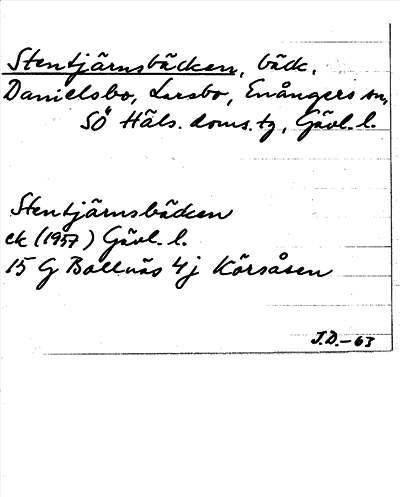 Stentjärnsbäcken, bäck.
Danielsbo, Larsbo, Enångers sn,
SÖ Häls. doms. tg, Gävl. l.
Stentjärnsbäcken
ek (1957) Gävl. l.
15 G Bollnäs 4j Körsåsen
J.D.-63